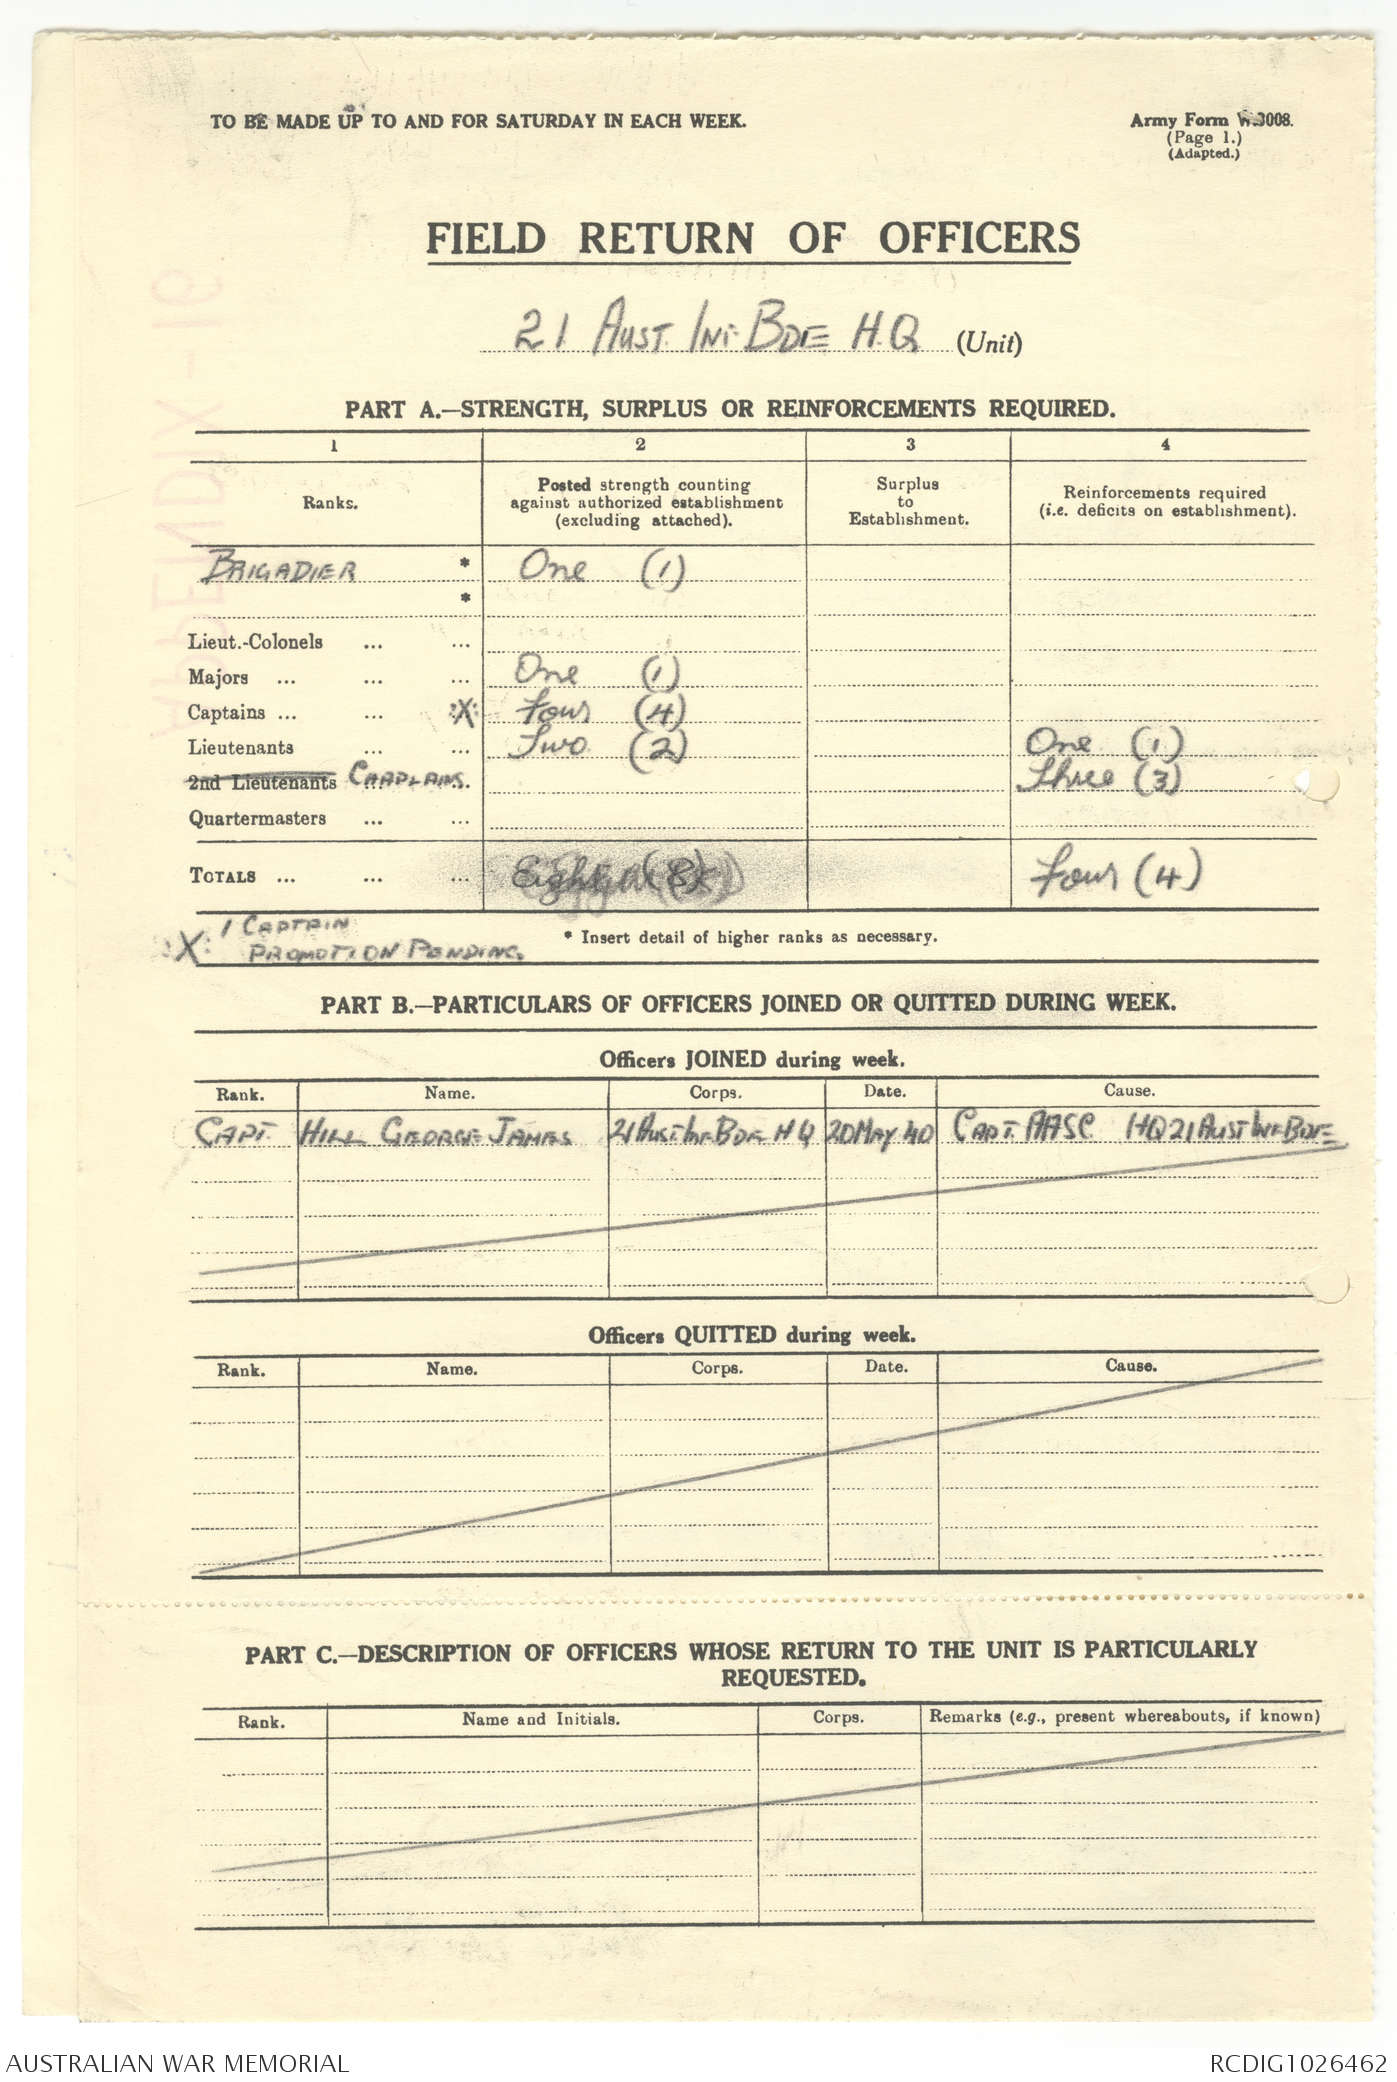 TO BE MADE UP TO AND FOR SATURDAY IN EACH WEEK.
Army Form W.3008.
(Page 1.)
(Adapted.)
FIELD RETURN OF OFFICERS
21 AUST. INF BDE H.Q (Unit)
APPENDIX - 16
PART A.—STRENGTH, SURPLUS OR REINFORCEMENTS REQUIRED.
1 2 3 4
Ranks. Posted strength counting against authorized establishment (excluding attached). Surplus to Establishment. Reinforcements required (i.e. deficits on establishment).
BRIGADIER * One (1)
*
Lieut.-Colonels ... ...
Majors ... ... ... One (1)
Captains ... ... :X: Four (4)
Lieutenants ... ... Two (2) One (1)
2nd Lieutenants CHAPLAINS. Three (3)
Quartermasters ... ...
TOTALS ... ... ... Eight (8) Four (4)
:X: 1 CAPTAIN
PROMOTION PENDING.
* Insert detail of higher ranks as necessary.
PART B.—PARTICULARS OF OFFICERS JOINED OR QUITTED DURING WEEK.
Officers JOINED during week.
Rank. Name. Corps. Date. Cause.
CAPT. HILL GEORGE JAMES 21 AUST INF BDE HQ 20 MAY 40 CAPT. AASC HQ 21 AUST INF BDE
Officers QUITTED during week.
Rank. Name. Corps. Date. Cause.
PART C.—DESCRIPTION OF OFFICERS WHOSE RETURN TO THE UNIT IS PARTICULARLY
REQUESTED.
Rank. Name and Initials. Corps. Remarks (e.g., present whereabouts, if known)
AUSTRALIAN WAR MEMORIAL
RCDIG1026462